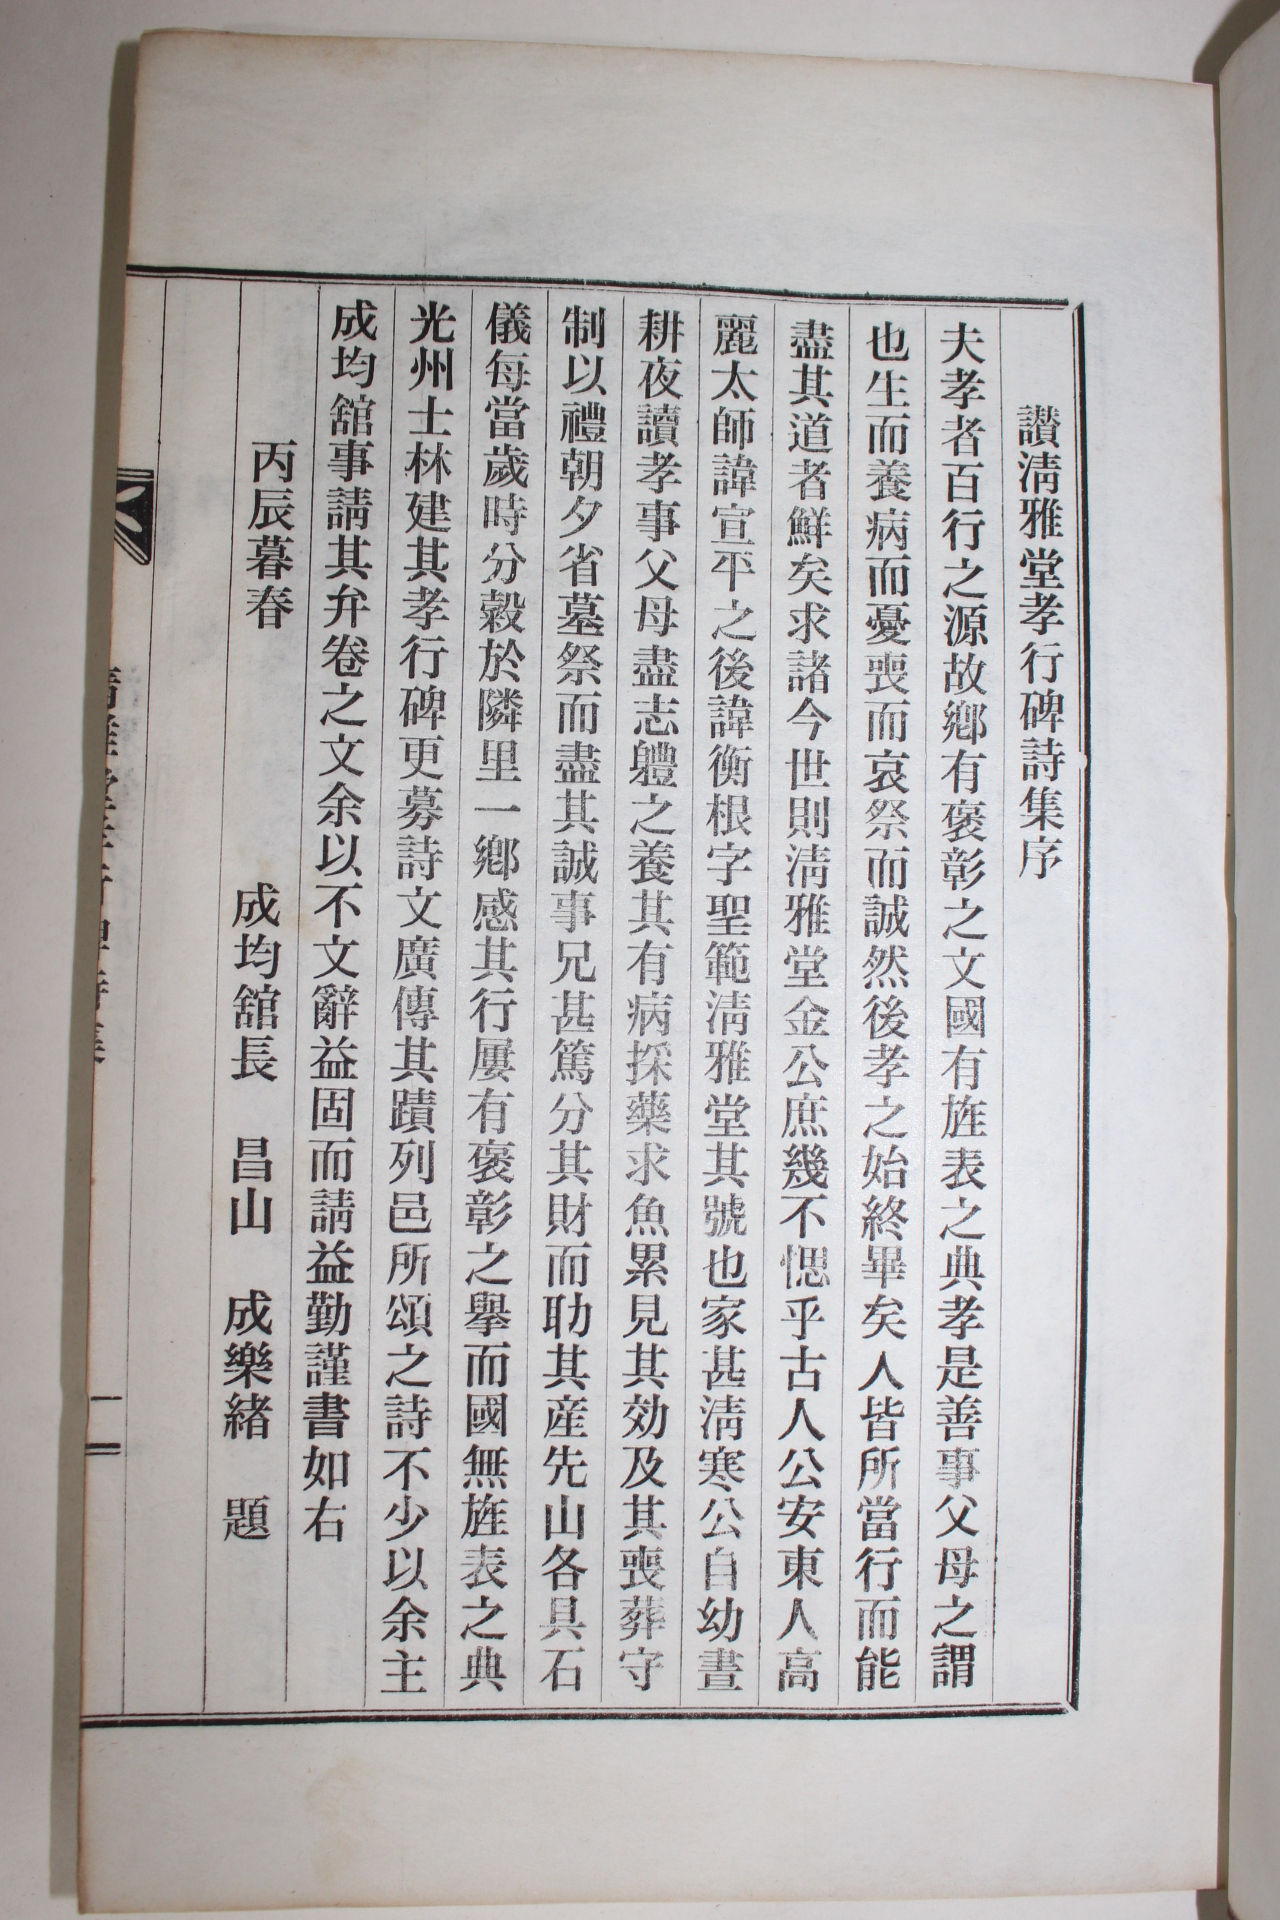 讚淸雅堂孝行碑詩集序
夫孝者百行之源故鄕有褒彰之文國有旌表之典孝是善事父母之謂
也生而養病而憂喪而哀祭而誠然後孝之始終畢矣人皆所當行而能
盡其道者鮮矣求諸今世則淸雅堂金公庶幾不愢乎古人公安東人高
麗太師諱宣平之後諱衡根字聖範淸雅堂其號也家甚淸寒公自幼晝
耕夜讀孝事父母盡志軆之養其有病採藥求魚累見其効及其喪葬守
制以禮朝夕省墓祭而盡其誠事兄甚篤分其財而助其産先山各具石
儀每當歲時分穀於隣里一鄕感其行屢有褒彰之擧而國無旌表之典
光州士林建其孝行碑更募詩文廣傳其蹟列邑所頌之詩不少以余主
成均舘事請其弁卷之文余以不文辭益固而請益勤謹書如右
丙辰暮春 成均舘長 昌山 成樂緖 題
淸雅堂孝行碑詩集 一